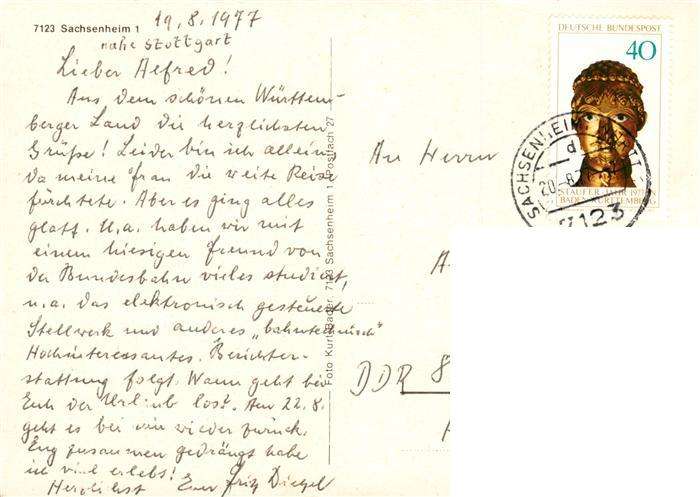 19.8.1977
7123 Sachsenheim 1
nahe Stuttgart
Lieber Alfred!
Aus dem schönen Württem-
berger Land die herzlichsten
Grüße! Leider bin ich allein,
da meine Frau die weite Reise
fürchtete. Aber es ging alles
glatt. U.a. haben wir mit
einem hiesigen Freund von
der Bundesbahn vieles studiert,
u.a. das elektronisch gesteuerte
Stellwerk und anderes „bahntechnisch"
Hochinteressantes. Berichter-
stattung folgt. Wann geht bei
Euch der Urlaub los? Am 22.8.
geht es bei mir wieder zurück.
Eng zusammen gedrängt habe
ich viel erlebt!
Herzlichst Euer Fritz
Foto Kurt Bader 7123 Sachsenheim 1 Postfach 27
DEUTSCHE BUNDESPOST
40
STAUFER-JAHR 1977
BADEN-WÜRTTEMBERG
SACHSENHEIM
d
20.-8.
7123
An Herrn
A
DDR 8